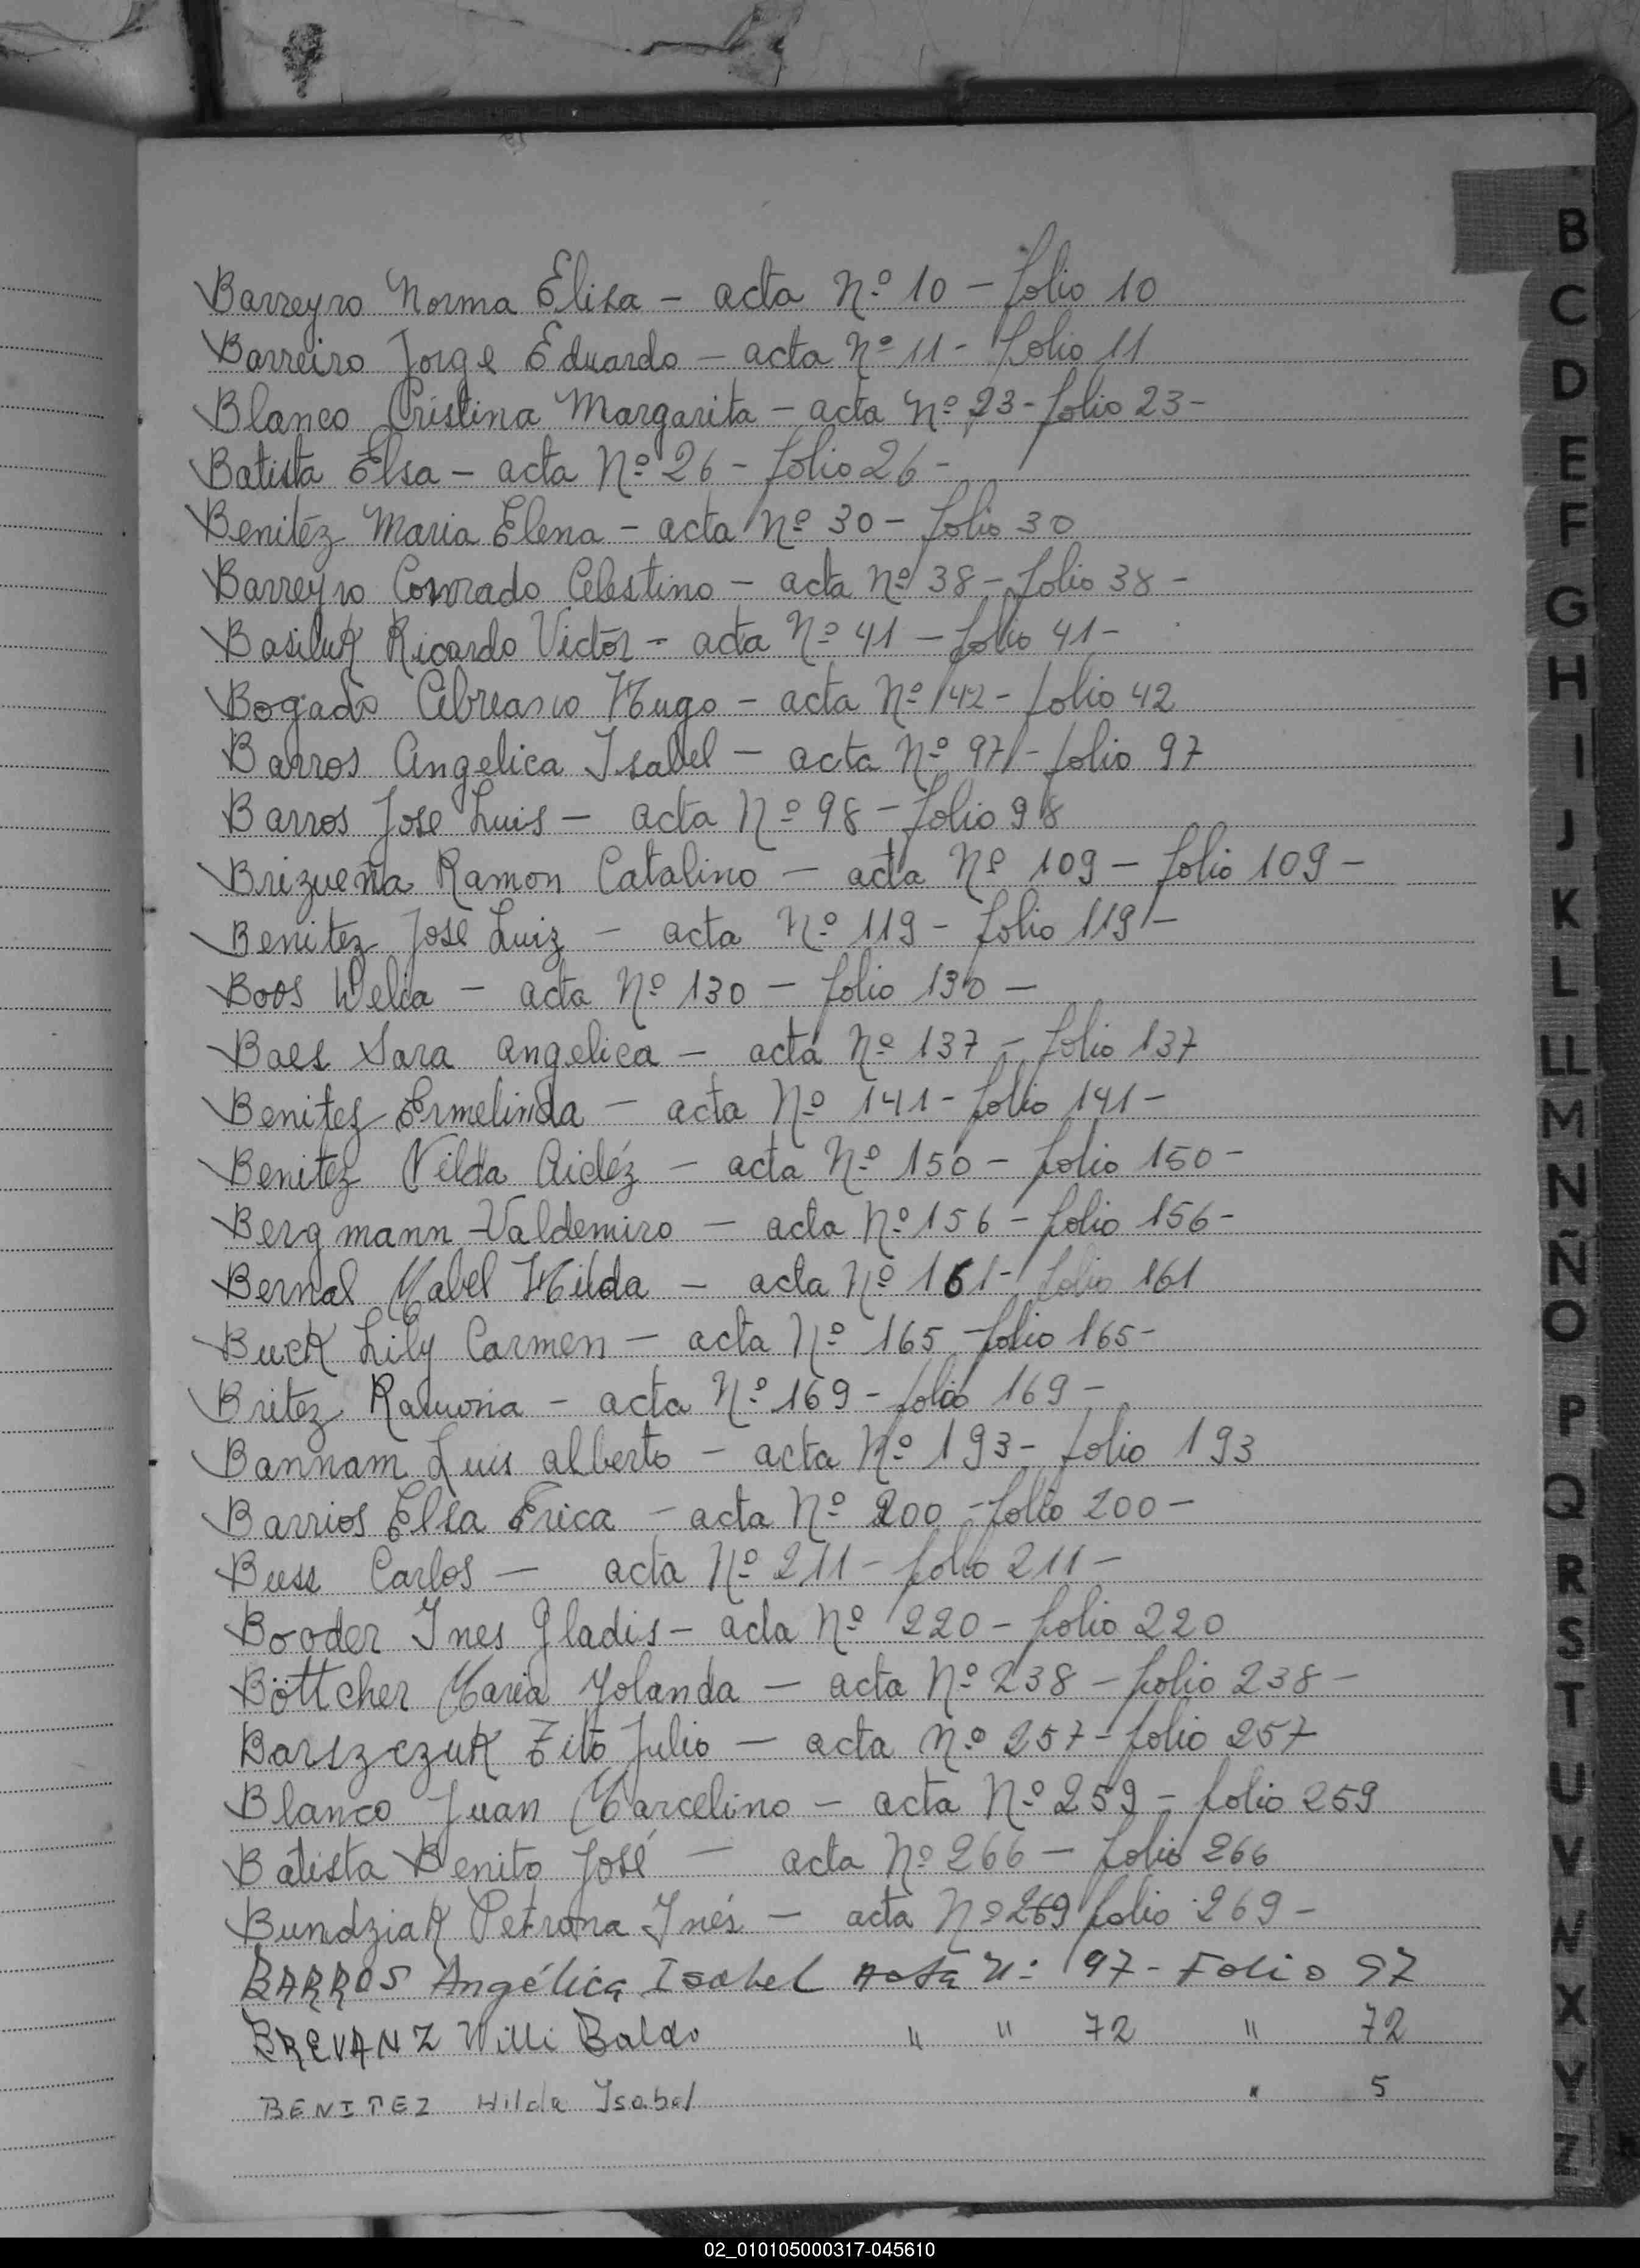 Barreyro Norma Elisa - acta Nº 10 - folio 10
Barreiro Jorge Eduardo - acta Nº 11 - folio 11
Blanco Cristina Margarita - acta Nº 23 - folio 23 -
Batista Elsa - acta Nº 26 - folio 26 -
Benitéz Maria Elena - acta Nº 30 - folio 30
Barreyro Conrado Celestino - acta Nº 38 - folio 38 -
Basiluk Ricardo Victor - acta Nº 41 - folio 41 -
Bogado Hugo - acta Nº 42 - folio 42
Barros Angelica Isabel - acta Nº 97 - folio 97
Barros Jose Luis - acta Nº 98 - folio 98
Brizueña Ramon Catalino - acta Nº 109 - folio 109 -
Benitez Jose Luiz - acta Nº 119 - folio 119 -
Boos Welia - acta Nº 130 - folio 130 -
Baes Sara angelica - acta Nº 137 - folio 137
Benitez Ermelinda - acta Nº 141 - folio 141 -
Benitez Nilda Aidéz - acta Nº 150 - folio 150 -
Bergmann Valdemiro - acta Nº 156 - folio 156 -
Bernal Mabel Hilda - acta Nº 161 - folio 161
Buck Lily Carmen - acta Nº 165 - folio 165 -
Britez Ramona - acta Nº 169 - folio 169 -
Bannam Luis alberto - acta Nº 193 - folio 193
Barrios Elsa Erica - acta Nº 200 - folio 200 -
Buss Carlos - acta Nº 211 - folio 211 -
Booder Ines Gladis - acta Nº 220 - folio 220
Böttcher Maria Yolanda - acta Nº 238 - folio 238 -
Barszczuk Zito Julio - acta Nº 257 - folio 257
Blanco Juan Marcelino - acta Nº 259 - folio 259
Batista Benito José - acta Nº 266 - folio 266
Bundziak Petrona Inés - acta Nº 269 folio 269 -
BARROS Angélica Isabel Acta Nº 97 - Folio 97
BREVANZ Willi Baldo " " 72 " 72
BENITEZ Hilda Isabel " 5
B
C
D
E
F
G
H
I
J
K
L
LL
M
N
Ñ
O
P
Q
R
S
T
U
V
W
X
Y
Z
02_010105000317-045610